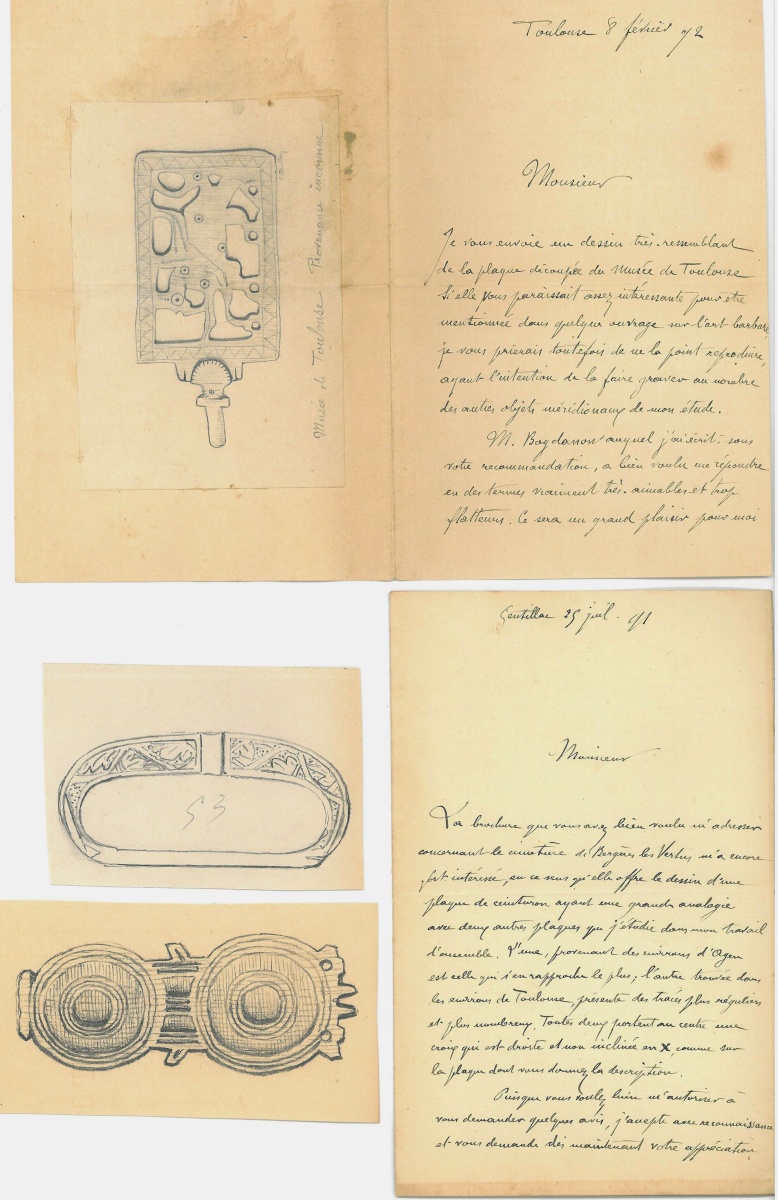 Toulouse 8 février 92
Monsieur
Je vous envoie un dessin très-ressemblant
de la plaque découpée du Musée de Toulouse
Si elle vous paraissait assez intéressante pour etre
mentionnée dans quelque ouvrage sur l'art barbare,
je vous prierais toutefois de ne la point reproduire,
ayant l'intention de la faire graver au nombre
des autres objets méridionaux de mon étude.
M. Bogdanow auquel j'ai écrit sous
votre recommandation, a bien voulu me répondre
en des termes vraiment très-aimables et trop
flatteurs. Ce sera un grand plaisir pour moi
Musée de Toulouse Provenance inconnue
25 juil. 91
Monsieur
La brochure que vous avez bien voulu m'adresser
concernant le cimetière de Bergères les Vertus m'a encore
fort intéressé, en ce sens qu'elle offre le dessin d'une
plaque de ceinturon ayant une grande analogie
avec deux autres plaques que j'étudie dans mon travail
d'ensemble. L'une, provenant des environs d'Agen
est celle qui s'en rapproche le plus, l'autre trouvée dans
les environs de Toulouse, présente des tracés plus réguliers
et plus nombreux. Toutes deux portent au centre une
croix qui est droite et non inclinée en X comme sur
la plaque dont vous donnez la description.
Puisque vous voulez bien m'autoriser à
vous demander quelques avis, j'accepte avec reconnaissance
et vous demande dès maintenant votre appréciation
53